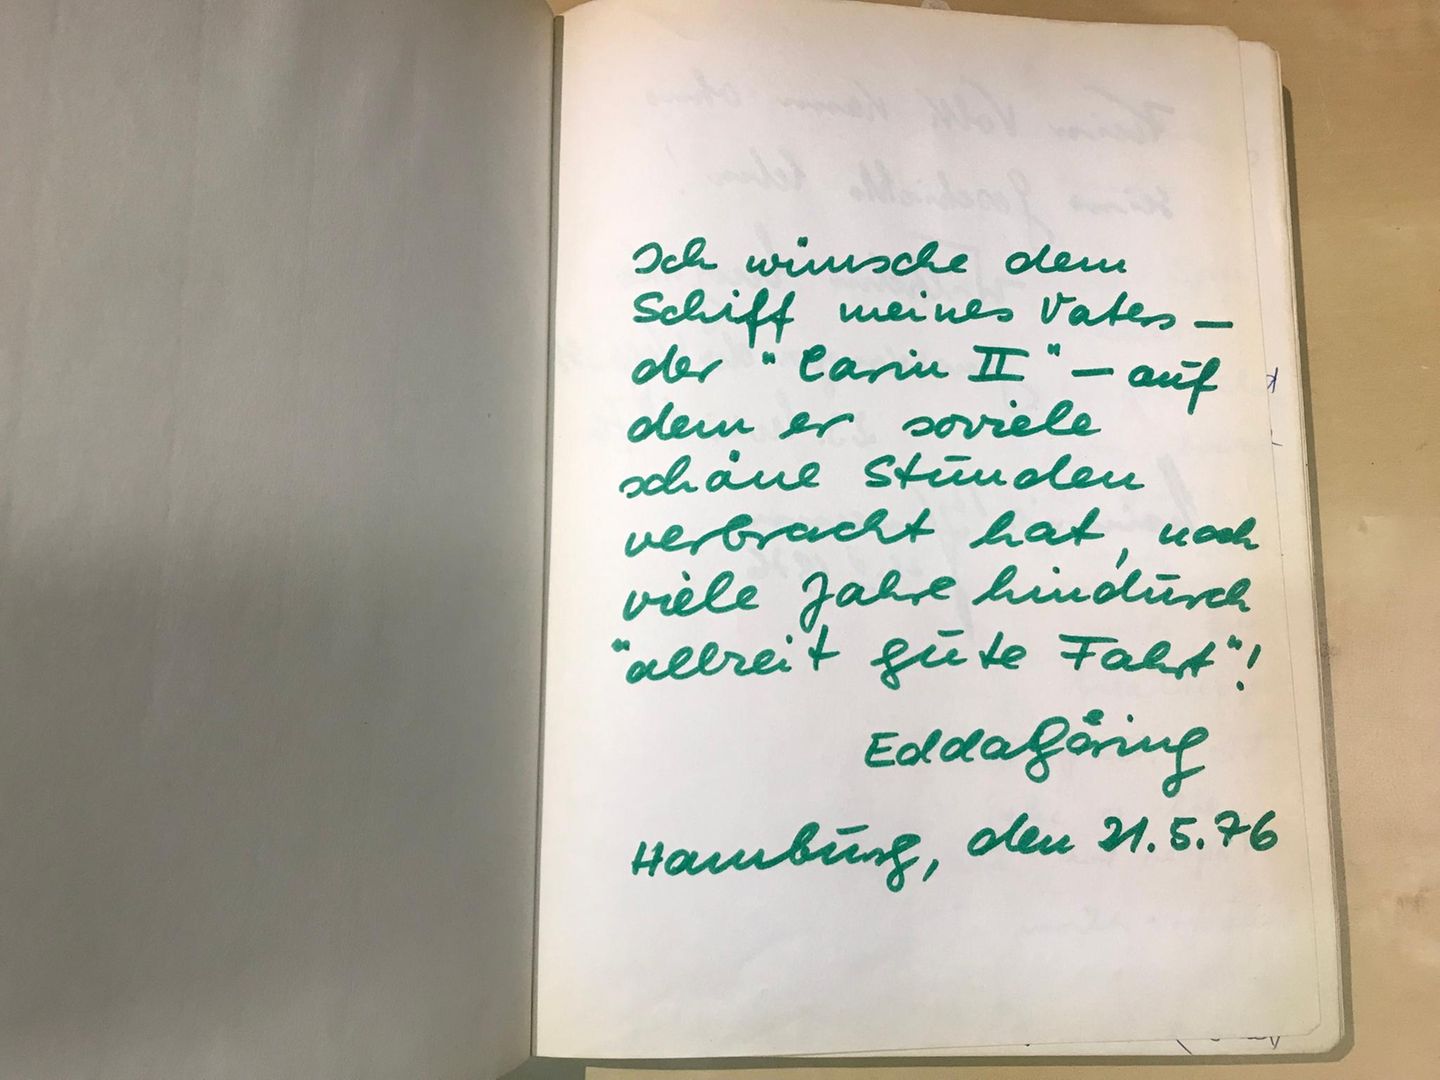 Ich wünsche dem
Schiff meines Vaters –
der "Carin II" – auf
dem er soviele
schöne Stunden
verbracht hat, noch
viele Jahre hindurch
"allzeit gute Fahrt"!
Edda Göring
Hamburg, den 21.5.76